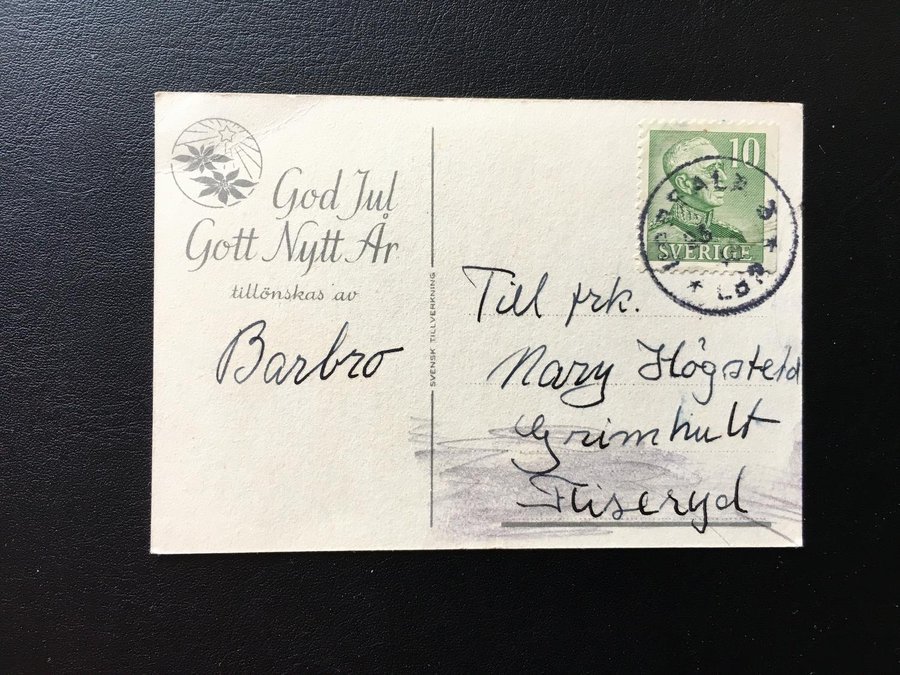 God Jul
Gott Nytt År
tillönskas av
Barbro
SVENSK TILLVERKNING
10
SVERIGE
Till frk.
Mary Högsteld
Grimhult
Fliseryd